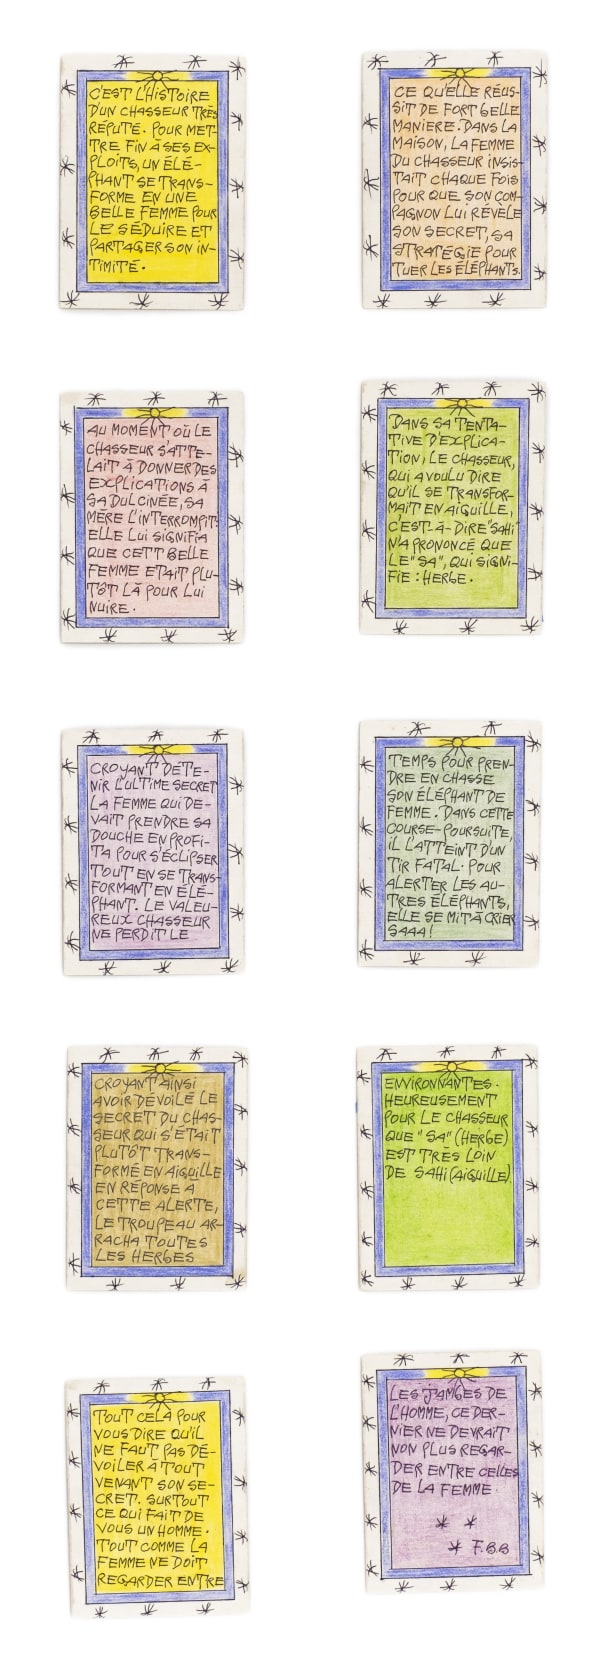 C'EST L'HISTOIRE
D'UN CHASSEUR TRÈS
RÉPUTÉ. POUR MET-
TRE FIN À SES EX-
PLOITS, UN ÉLÉ-
PHANT SE TRANS-
FORME EN UNE
BELLE FEMME POUR
LE SÉDUIRE ET
PARTAGER SON IN-
TIMITÉ.
CE QU'ELLE RÉUS-
SIT DE FORT BELLE
MANIERE. DANS LA
MAISON, LA FEMME
DU CHASSEUR INSIS-
TAIT CHAQUE FOIS
POUR QUE SON COM-
PAGNON LUI RÉVÈLE
SON SECRET, SA
STRATÉGIE POUR
TUER LES ÉLÉPHANTS.
AU MOMENT OÙ LE
CHASSEUR S'ATTE-
LAIT À DONNER DES
EXPLICATIONS À
SA DULCINÉE, SA
MÈRE L'INTERROMPIT.
ELLE LUI SIGNIFIA
QUE CETT BELLE
FEMME ETAIT PLU-
TÔT LÀ POUR LUI
NUIRE.
DANS SA TENTA-
TIVE D'EXPLICA-
TION, LE CHASSEUR,
QUI A VOULU DIRE
QU'IL SE TRANSFOR-
MAIT EN AIGUILLE,
C'EST-À-DIRE "SAHI"
N'A PRONONCÉ QUE
LE "SA", QUI SIGNI-
FIE : HERBE.
CROYANT DÉTE-
NIR L'ULTIME SECRET
LA FEMME QUI DE-
VAIT PRENDRE SA
DOUCHE EN PROFI-
TA POUR S'ÉCLIPSER
TOUT EN SE TRANS-
FORMANT EN ÉLÉ-
PHANT. LE VALEU-
REUX CHASSEUR
NE PERDIT LE
TEMPS POUR PREN-
DRE EN CHASSE
SON ÉLÉPHANT DE
FEMME. DANS CETTE
COURSE-POURSUITE,
IL L'ATTEINT D'UN
TIR FATAL. POUR
ALERTER LES AU-
TRES ÉLÉPHANTS,
ELLE SE MIT À CRIER
SAAA!
CROYANT AINSI
AVOIR DÉVOILÉ LE
SECRET DU CHAS-
SEUR QUI S'ÉTAIT
PLUTÔT TRANS-
FORMÉ EN AIGUILLE
EN RÉPONSE A
CETTE ALERTE,
LE TROUPEAU AR-
RACHA TOUTES
LES HERBES
ENVIRONNANTES.
HEUREUSEMENT
POUR LE CHASSEUR
QUE "SA" (HERBE)
EST TRÈS LOIN
DE SAHI (AIGUILLE).
TOUT CELA POUR
VOUS DIRE QU'IL
NE FAUT PAS DÉ-
VOILER À TOUT
VENANT SON SE-
CRET. SURTOUT
CE QUI FAIT DE
VOUS UN HOMME.
TOUT COMME LA
FEMME NE DOIT
REGARDER ENTRE
LES JAMBES DE
L'HOMME, CE DER-
NIER NE DEVRAIT
NON PLUS REGAR-
DER ENTRE CELLES
DE LA FEMME.
F.B.B